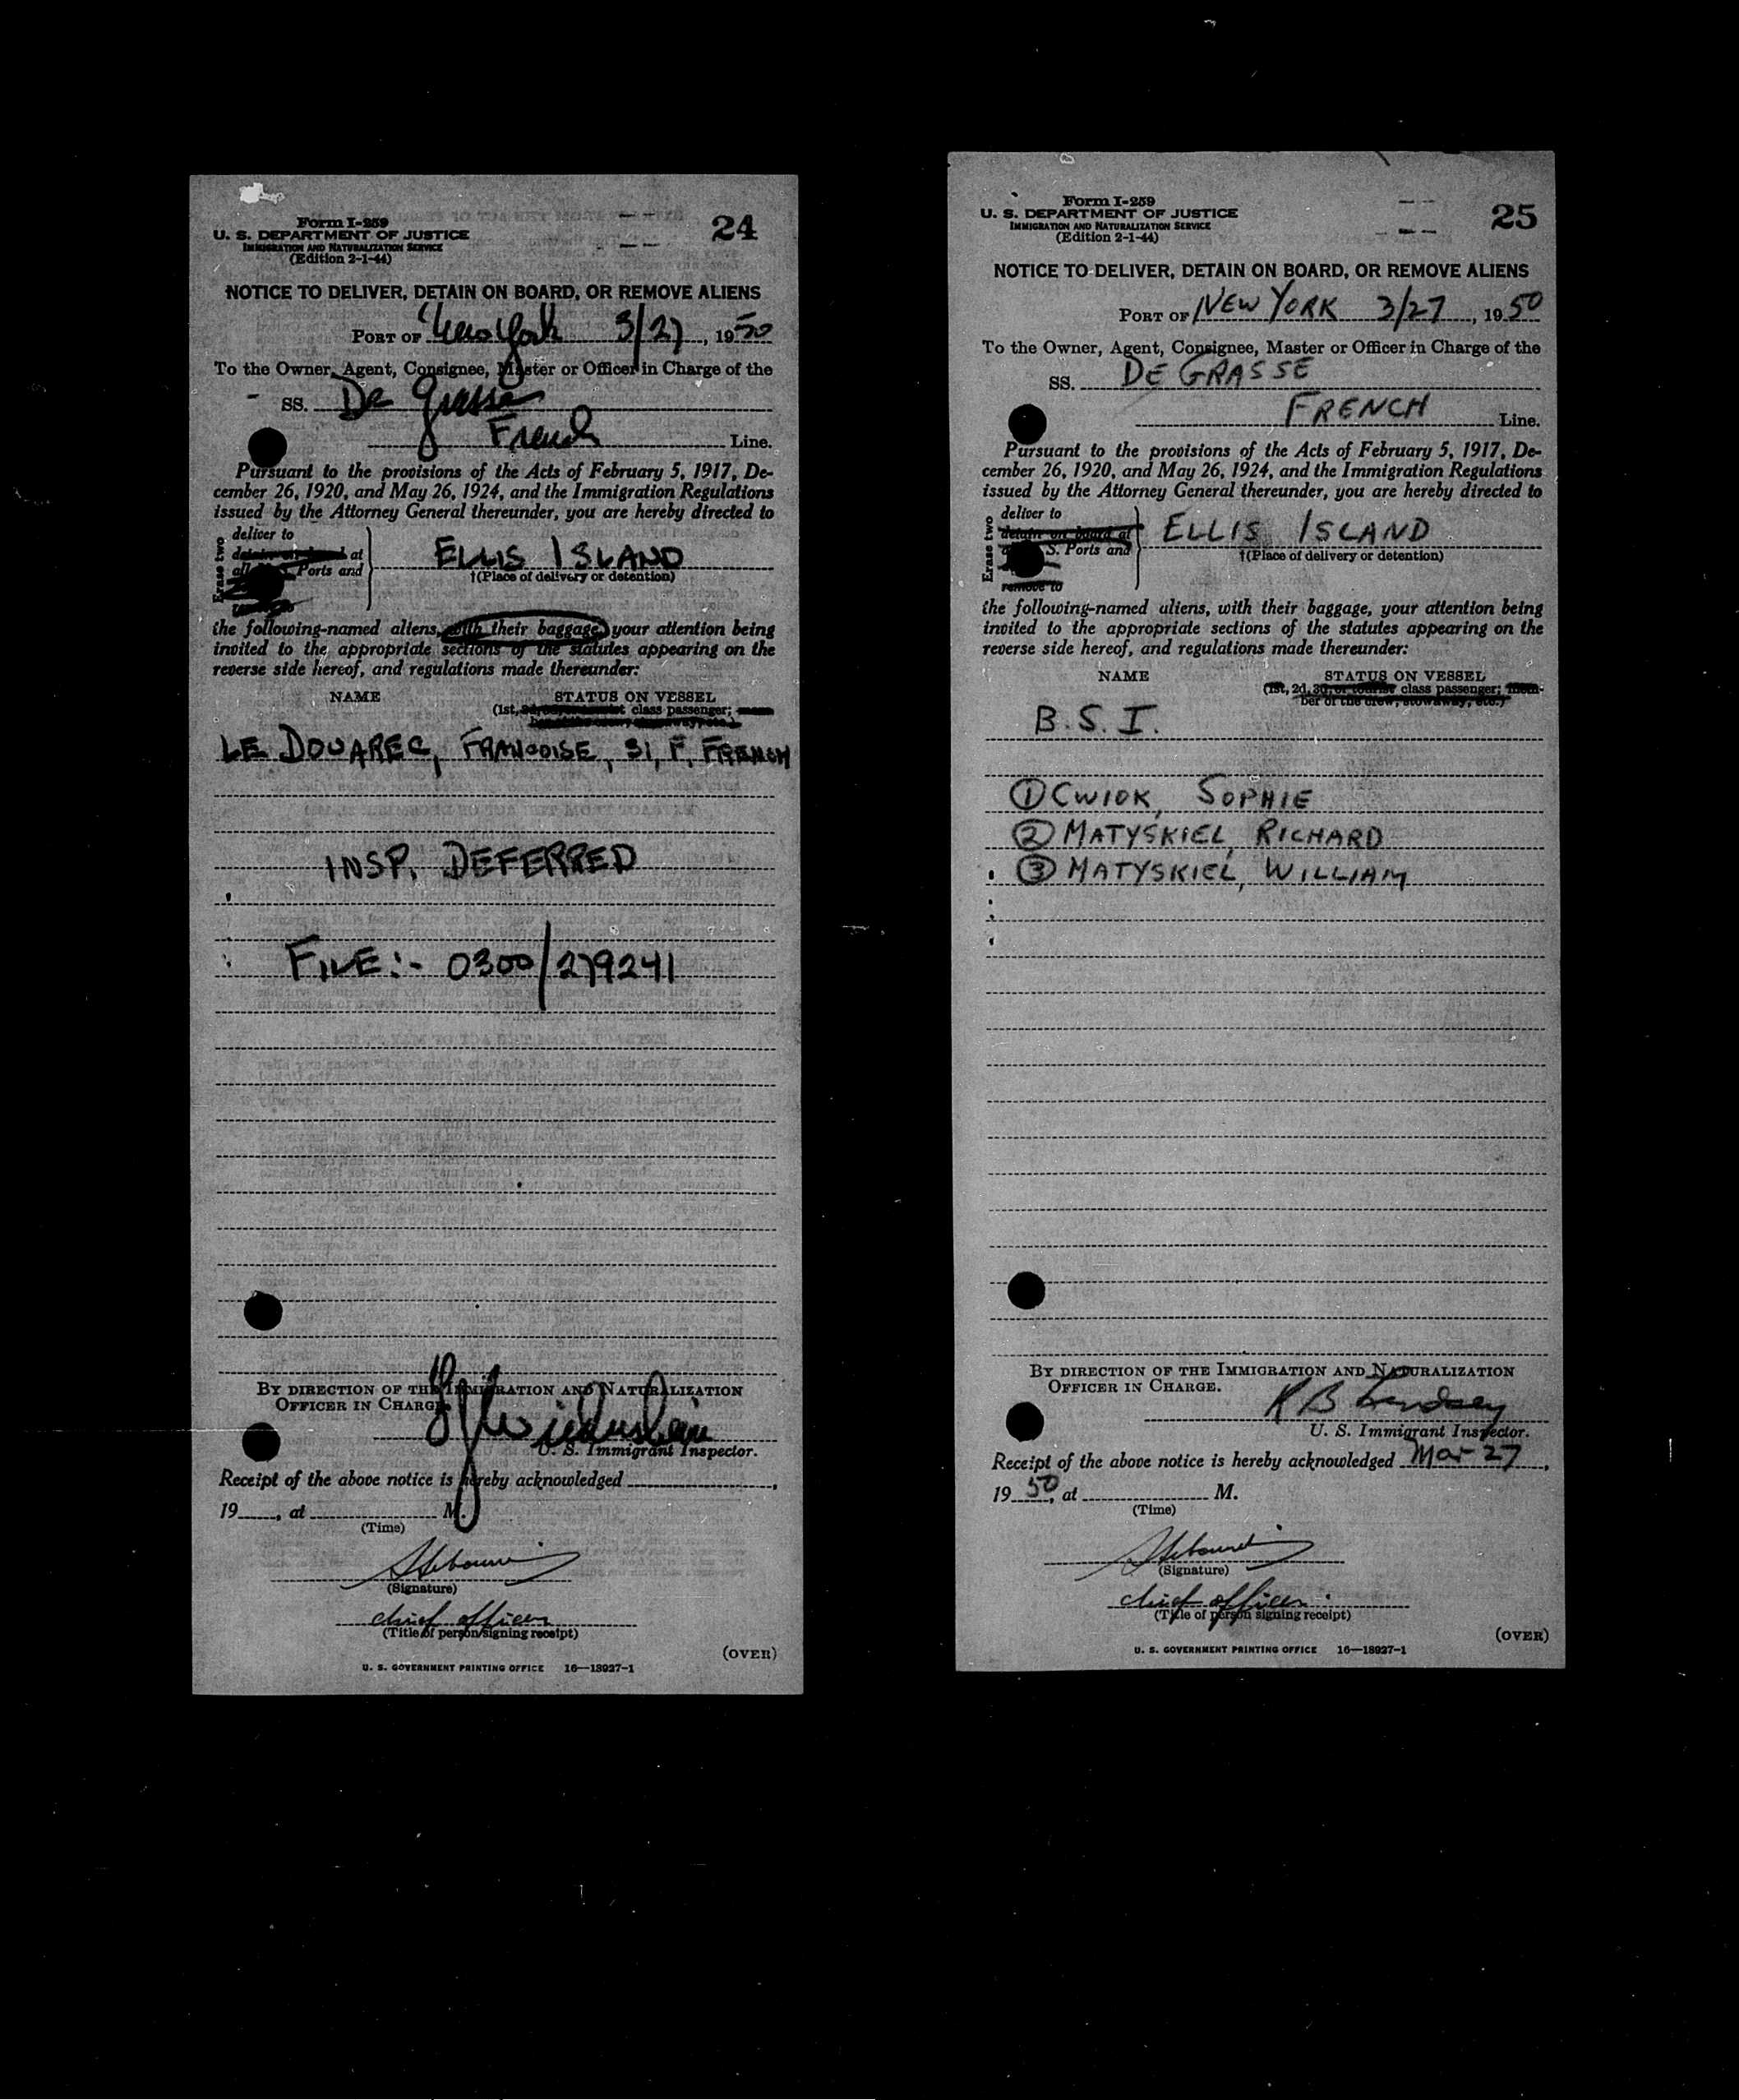 Form I-259
U. S. DEPARTMENT OF JUSTICE
IMMIGRATION AND NATURALIZATION SERVICE
(Edition 2-1-44)
24
NOTICE TO DELIVER, DETAIN ON BOARD, OR REMOVE ALIENS
PORT OF New York 3/27, 1950
To the Owner, Agent, Consignee, Master or Officer in Charge of the
SS. De Grasse
French Line.
Pursuant to the provisions of the Acts of February 5, 1917, De-
cember 26, 1920, and May 26, 1924, and the Immigration Regulations
issued by the Attorney General thereunder, you are hereby directed to
Erase two
deliver to
at
Ports and
ELLIS ISLAND
†(Place of delivery or detention)
the following-named aliens, with their baggage, your attention being
invited to the appropriate sections of the statutes appearing on the
reverse side hereof, and regulations made thereunder:
NAME STATUS ON VESSEL
(1st, class passenger;
LE DOUAREC, FRANCOISE, 31, F, FRENCH
INSP. DEFERRED
FILE:- 0300/279241
BY DIRECTION OF THE IMMIGRATION AND NATURALIZATION
OFFICER IN CHARGE.
U. S. Immigrant Inspector.
Receipt of the above notice is hereby acknowledged
19 , at M.
(Time)
(Signature)
chief officer
(Title of person signing receipt)
(OVER)
U. S. GOVERNMENT PRINTING OFFICE 16—18927-1
Form I-259
U. S. DEPARTMENT OF JUSTICE
IMMIGRATION AND NATURALIZATION SERVICE
(Edition 2-1-44)
25
NOTICE TO DELIVER, DETAIN ON BOARD, OR REMOVE ALIENS
PORT OF NEW YORK 3/27, 1950
To the Owner, Agent, Consignee, Master or Officer in Charge of the
SS. DE GRASSE
FRENCH Line.
Pursuant to the provisions of the Acts of February 5, 1917, De-
cember 26, 1920, and May 26, 1924, and the Immigration Regulations
issued by the Attorney General thereunder, you are hereby directed to
Erase two
deliver to
detain on board at
S. Ports and
remove to
ELLIS ISLAND
†(Place of delivery or detention)
the following-named aliens, with their baggage, your attention being
invited to the appropriate sections of the statutes appearing on the
reverse side hereof, and regulations made thereunder:
NAME STATUS ON VESSEL
(1st, 2d, 3d, or tourist class passenger; mem-
ber of the crew, stowaway, etc.)
B.S.I.
① CWIOK, SOPHIE
② MATYSKIEL, RICHARD
③ MATYSKIEL, WILLIAM
BY DIRECTION OF THE IMMIGRATION AND NATURALIZATION
OFFICER IN CHARGE.
R B Lindsey
U. S. Immigrant Inspector.
Receipt of the above notice is hereby acknowledged Mar 27,
1950, at M.
(Time)
(Signature)
chief officer
(Title of person signing receipt)
(OVER)
U. S. GOVERNMENT PRINTING OFFICE 16—18927-1